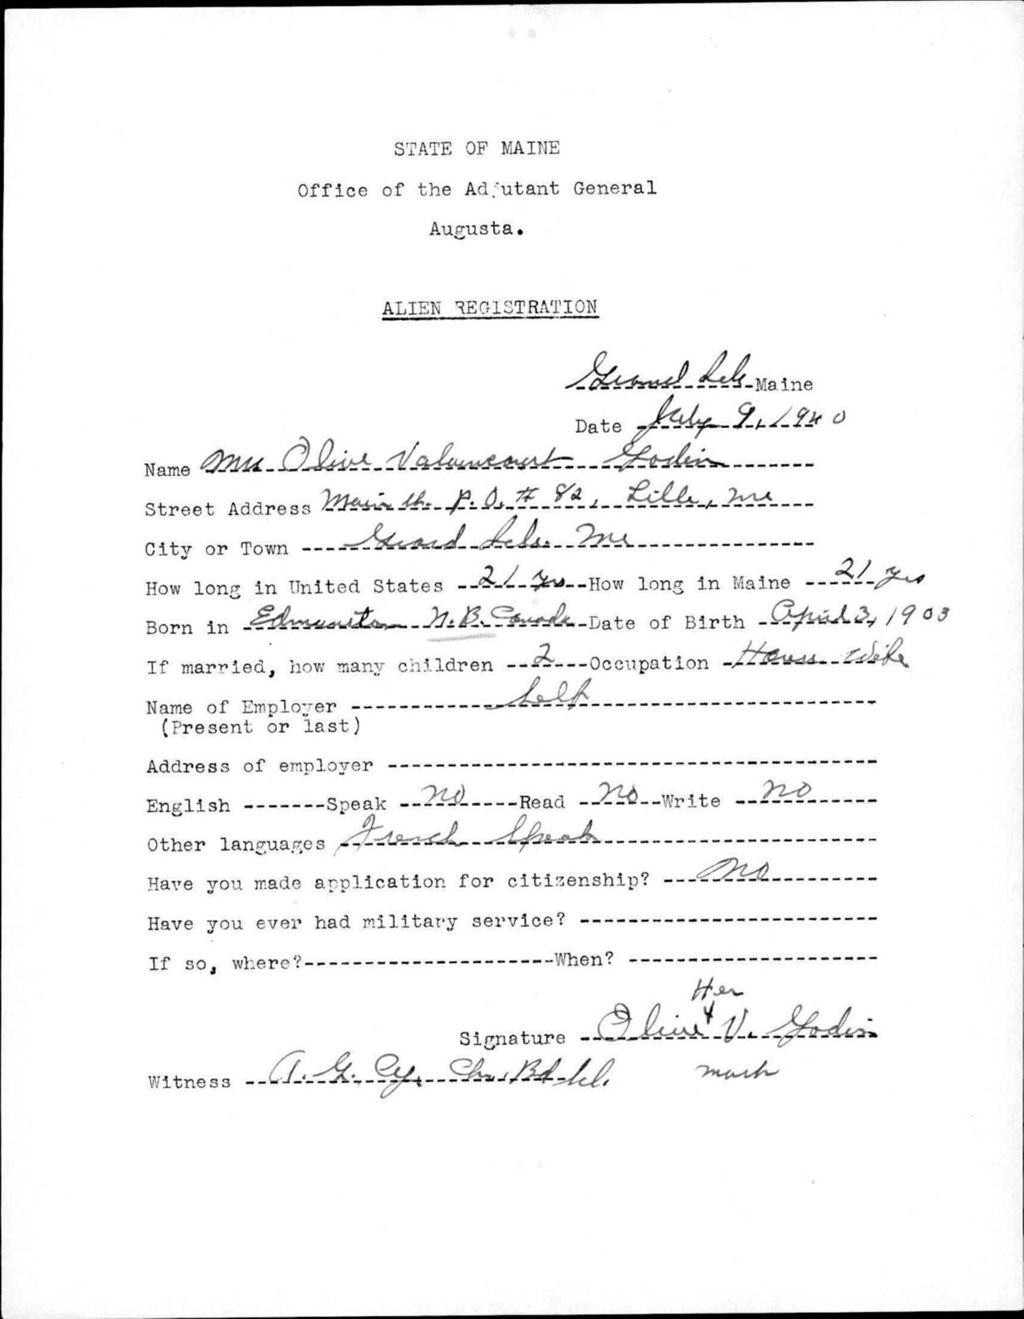 STATE OF MAINE
Office of the Adjutant General
Augusta.
ALIEN REGISTRATION
Grand Isle Maine
Date July 9, 1940
Name Mrs Olive Valancourt Godin
Street Address Main St. P.O. # 82, Lille, Me
City or Town Grand Isle. Me
How long in United States 21 yrs How long in Maine 21 yrs
Born in N.B. Canada Date of Birth April 3, 1903
If married, how many children 2 Occupation House Wife
Name of Employer Self
(Present or last)
Address of employer
English Speak No Read No Write No
Other languages French Speak
Have you made application for citizenship? No
Have you ever had military service?
If so, where? When?
Her
Signature Olive x V. Godin
Witness A. G. Cyr, Ch. Bd. mark